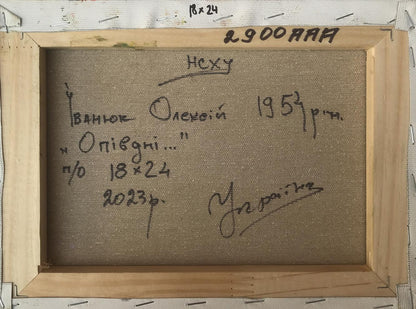 18x24
2900ААА
НСХУ
Іванюк Олексій 1954 р.н.
„Опівдні..."
п/о 18x24
2023р.
Україна